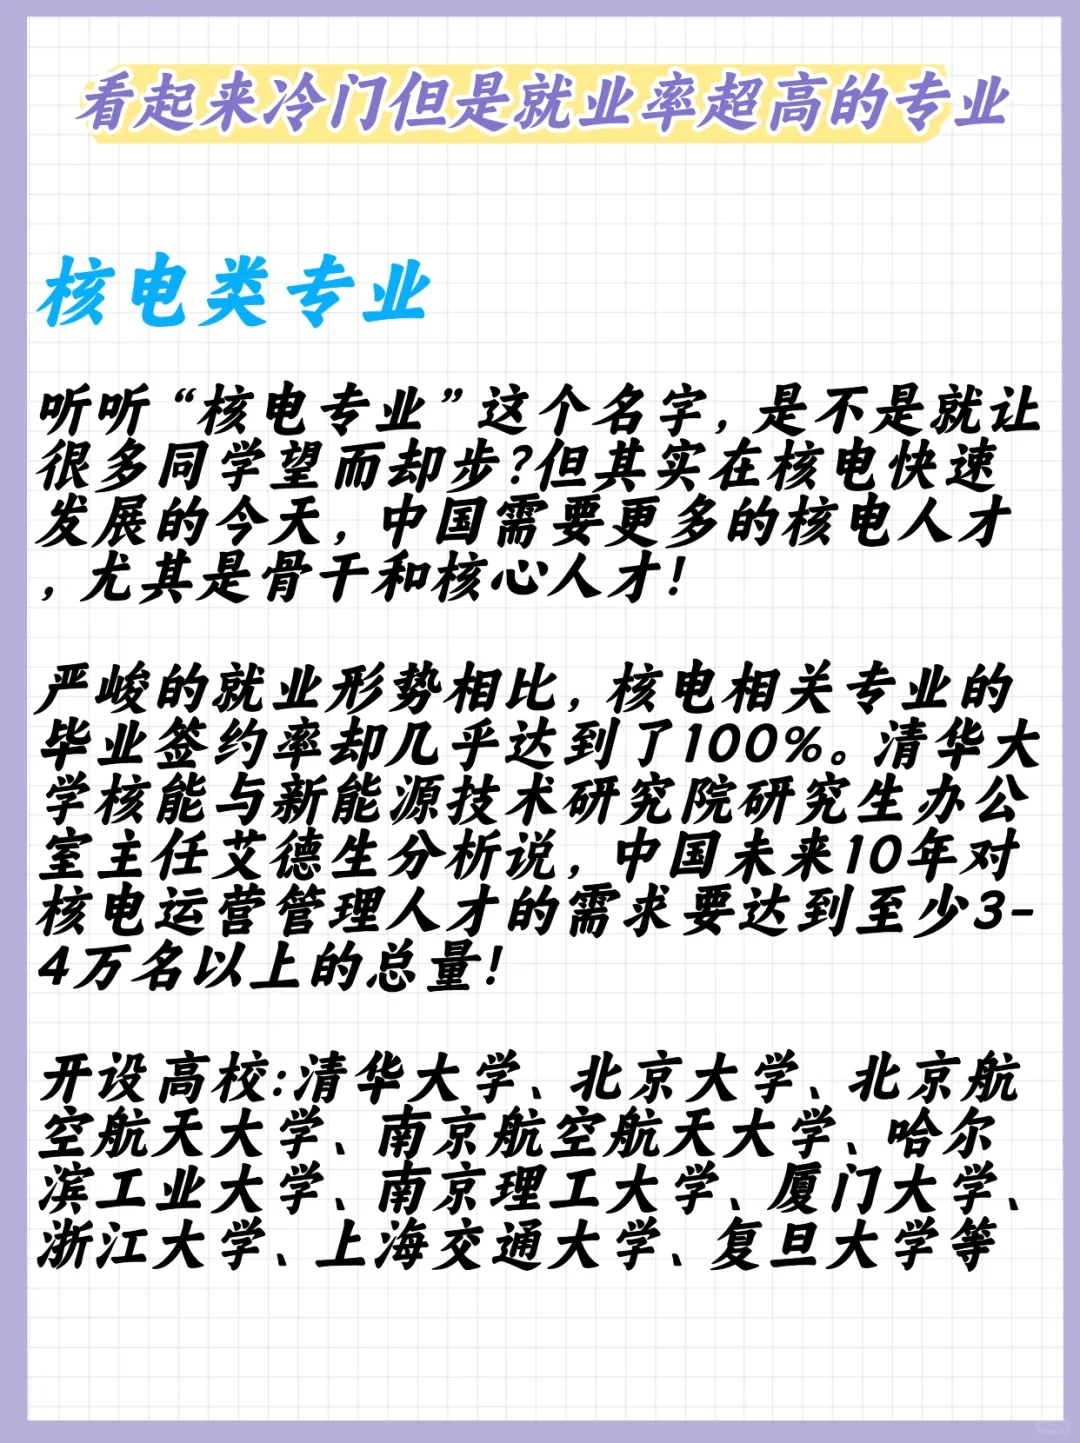 看起来冷门但是就业率超高的专业
核电类专业
听听“核电专业”这个名字,是不是就让
很多同学望而却步?但其实在核电快速
发展的今天,中国需要更多的核电人才
,尤其是骨干和核心人才!
严峻的就业形势相比,核电相关专业的
毕业签约率却几乎达到了100%。清华大
学核能与新能源技术研究院研究生办公
室主任艾德生分析说,中国未来10年对
核电运营管理人才的需求要达到至少3-
4万名以上的总量!
开设高校:清华大学、北京大学、北京航
空航天大学、南京航空航天大学、哈尔
滨工业大学、南京理工大学、厦门大学、
浙江大学、上海交通大学、复旦大学等